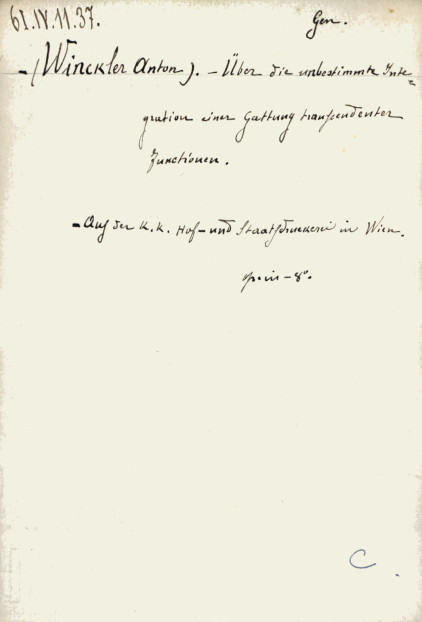 61.IV.11.37.
Gen.
-(Winckler Anton). - Über die unbestimmte Inte=
gration einer Gattung transcendenter
Functionen.
- Auf der K. K. Hof- und Staatsdruckerei in Wien.
in - 8°.
C